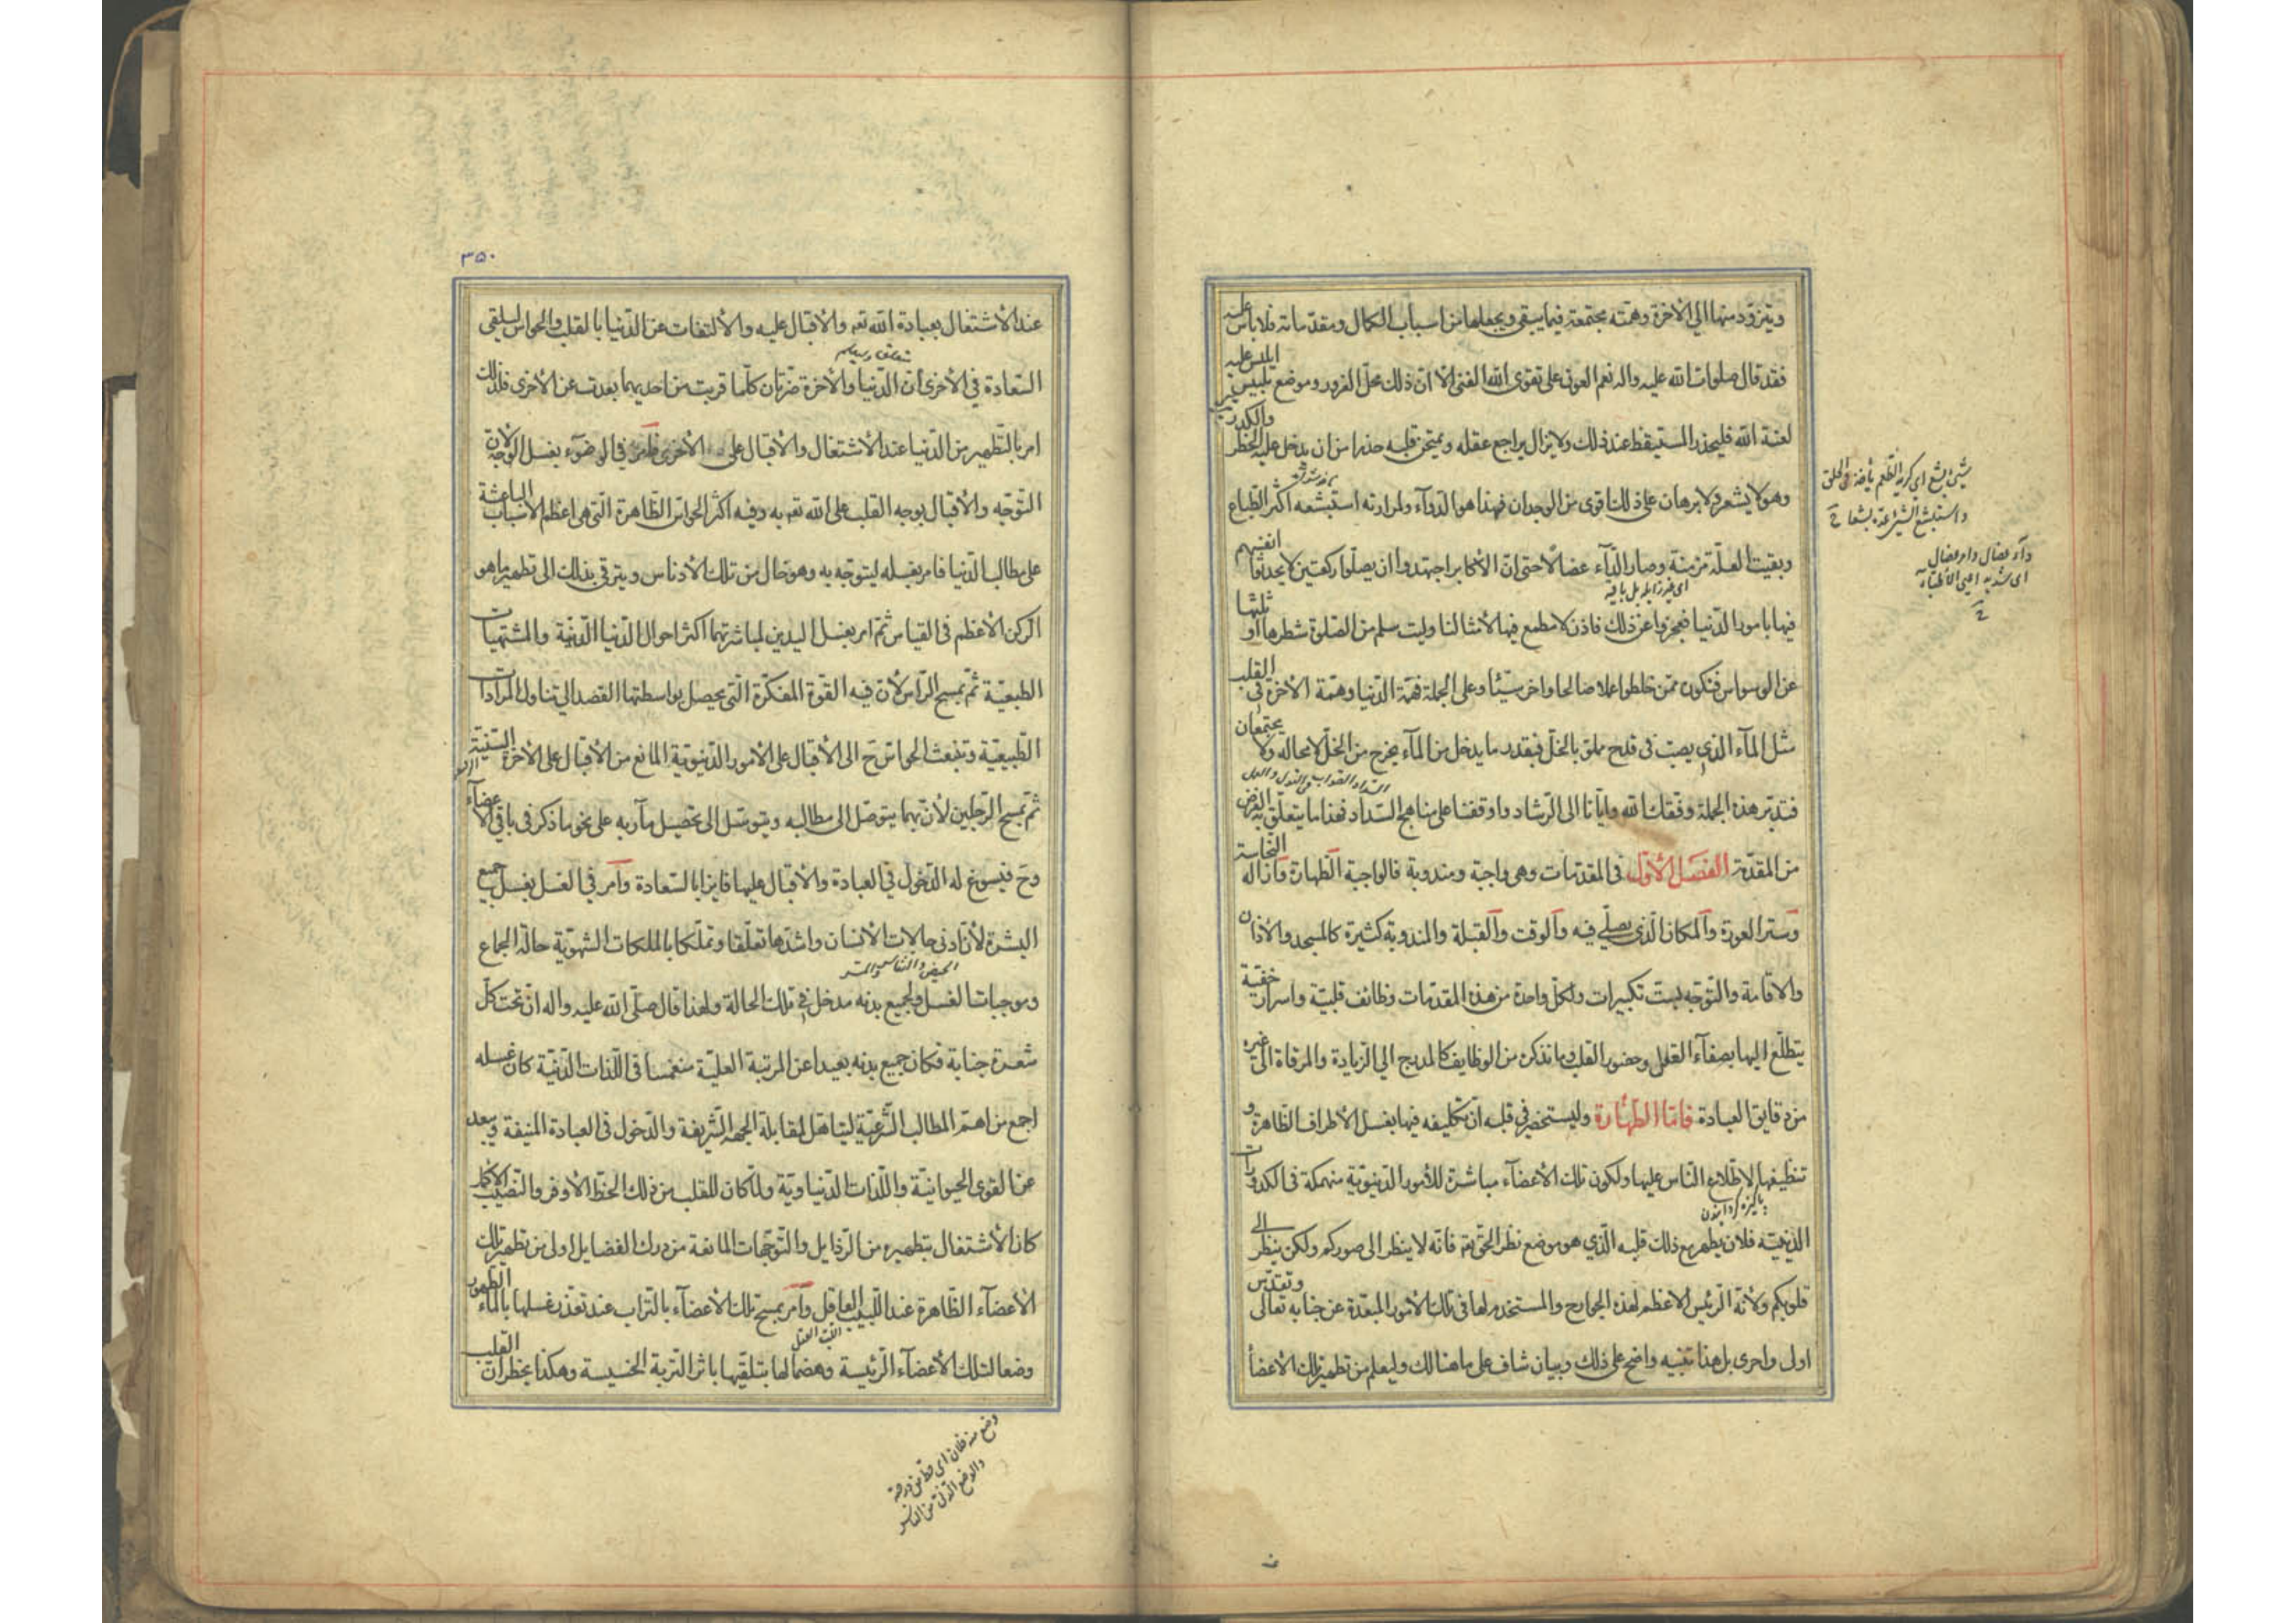 ويتزود منها الى الاخرة وهمته مجتمعة فيما يبقى ويجعلها من اسباب الكمال ومقدماته فلا بأس عليه
فقد قال صلوات الله عليه واله نعم العون على تقوى الله الغنى الا ان ذلك محل الغرور وموضع تلبيس ابليس عليه
لعنة الله فليحذر المستيقظ عند ذلك ولا يزال يراجع عقله ويمتحن قلبه حذرا من ان يدخل عليه الخطر والكدر
وهو لا يشعر ولا برهان على ذلك اقوى من الوجدان فهذا هو الدوآء ولمرارته استبشعه اكثر الطباع
وبقيت العلة مزمنة وصار الدآء عضالا حتى ان الأكابر اجتهدوا ان يصلوا ركعتين لا يحدثوا انفسهم
فيها بامور الدنيا فعجزوا عن ذلك فاذن لا مطمع فيها لأمثالنا وليت سلم من الصلوة شطرها او ثلثها
عن الوسواس فنكون ممن خلطوا عملا صالحا واخر سيئا وعلى الجملة فهمة الدنيا وهمة الاخرة فى القلب
مثل المآء الذي يصب فى قدح مملو بالخل فبقدر ما يدخل من المآء يخرج من الخل لا محاله ولا يجتمعان
فتدبر هذه الجملة وفقك الله وايانا الى الرشاد واوقفنا على مناهج السداد فهذا ما يتعلق به الغرض
من المقدمة الفصل الأول فى المقدمات وهى واجبة ومندوبة فالواجبة الطهارة وازالة النجاسة
وستر العورة والمكان الذى يصلي فيه والوقت والقبلة والمندوبة كثيرة كالمسجد والأذان
والاقامة والتوجه بست تكبيرات ولكل واحدة من هذه المقدمات وظائف قلبية واسرار خفية
يتطلع اليها بصفآء العقل وحضور القلب وما نذكره من الوظايف كالمدرج الي الزيادة والمرقاة الى غيره
من دقايق العبادة فاما الطهارة وليستحضر في قلبه ان تكليفه فيها بغسل الأطراف الظاهرة و
تنظيفها لاطلاع الناس عليها ولكون تلك الأعضآء مباشرة للأمور الدنيوية منهمكة فى الكدورات
الدنية فلان يطهر مع ذلك قلبه الذي هو موضع نظر الحق تعه فانه لا ينظر الى صوركم ولكن ينظر الى
قلوبكم ولأنه الرئيس الاعظم لهذه الجوارح والمستخدم لها فى تلك الأمور المبعدة عن جنابه تعالى وتقدس
اولى واحرى بل هذا تنبيه واضح على ذلك وبيان شاف على ما هنالك وليعلم من تطهير تلك الأعضآ
داء عضال وامر عضال
اى شديد اعيى الأطباء
٣٥٠
عند الأشتغال بعبادة الله تعه والاقبال عليه والألتفات عن الدنيا بالقلب والحواس لتلقى
السعادة في الأخرى ان الدنيا والأخرة ضرتان كلما قربت من احديهما بعدت عن الأخرى فلذلك
امر بالتطهير من الدنيا عند الأشتغال والأقبال على الأخرى فامر فى الوضوء بغسل الوجه لان
التوجه والأقبال بوجه القلب على الله تعه به وفيه اكثر الحواس الظاهرة التى هى اعظم الأسباب الباعثة
على مطالب الدنيا فامر بغسله ليتوجه به وهو خال من تلك الأدناس ويترقى بذلك الى تطهير ما هو
الركن الأعظم فى القياس ثم امر بغسل اليدين لمباشرتهما اكثر احوال الدنيا الدنية والمشتهيات
الطبعية ثم بمسح الراس لأن فيه القوة المفكرة التى يحصل بواسطتها القصد الى تناول المرادات
الطبيعية وتنبعث الحواس ح الى الأقبال على الأمور الدنيوية المانع من الأقبال على الأخرة السنية
ثم بمسح الرجلين لأن بهما يتوصل الى مطالبه ويتوسل الى تحصيل مآربه على نحو ما ذكر فى باقى الأعضآء
وح فيسوغ له الدخول في العبادة والأقبال عليها فايزا بالسعادة وامر فى الغسل بغسل جميع
البشرة لأن ادنى حالات الأنسان واشدها تعلقا وتملكا بالملكات الشهوية حالة الجماع
وموجبات الغسل ولجميع بدنه مدخل في تلك الحالة ولهذا قال صلى الله عليه واله ان تحت كل
شعرة جنابة فكان جميع بدنه بعيدا عن المرتبة العلية منغمسا فى اللذات الدنية كان غسله
اجمع من اهم المطالب الشرعية ليتاهل لمقابلة الجهة الشريفة والدخول فى العبادة المنيفة ويبعد
عن القوى الحيوانية واللذات الدنياوية ولما كان للقلب من ذلك الحظ الأوفر والنصيب الأكمل
كان الأشتغال بتطهيره من الرذايل والتوجهات المانعة من درك الفضايل اولى من تطهير تلك
الأعضآء الظاهرة عند اللبيب العاقل وامر بمسح تلك الأعضآء بالتراب عند تعذر غسلها بالمآء الطهور
وضعا لتلك الأعضآء الرئيسة وهضما لها بتلقيها باثر التربة الخسيسة وهكذا يخطر ان القلب